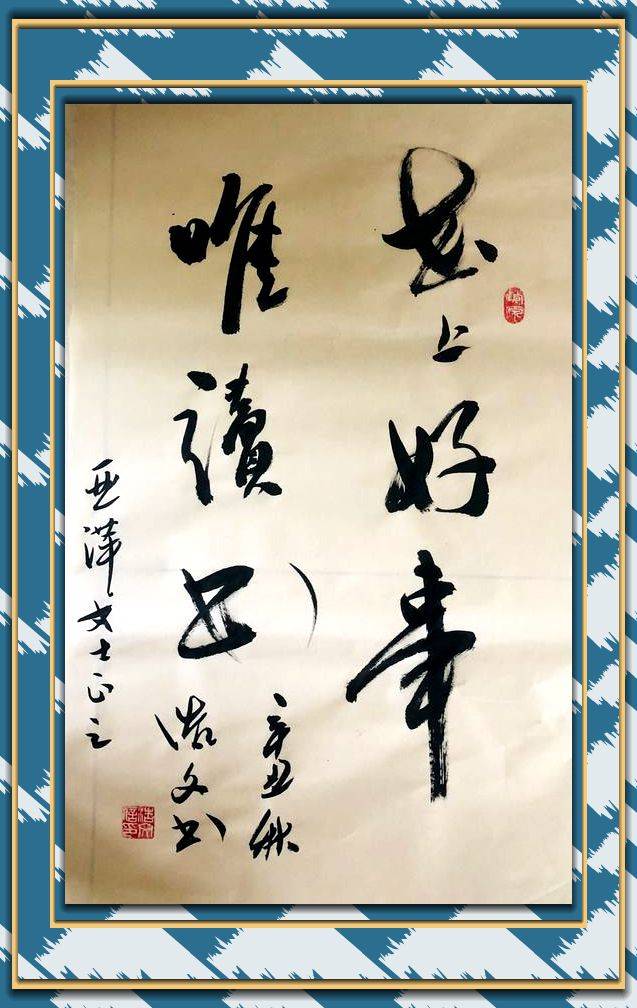 世上好事
唯讀书
辛丑秋
浩文书
亚萍女士正之